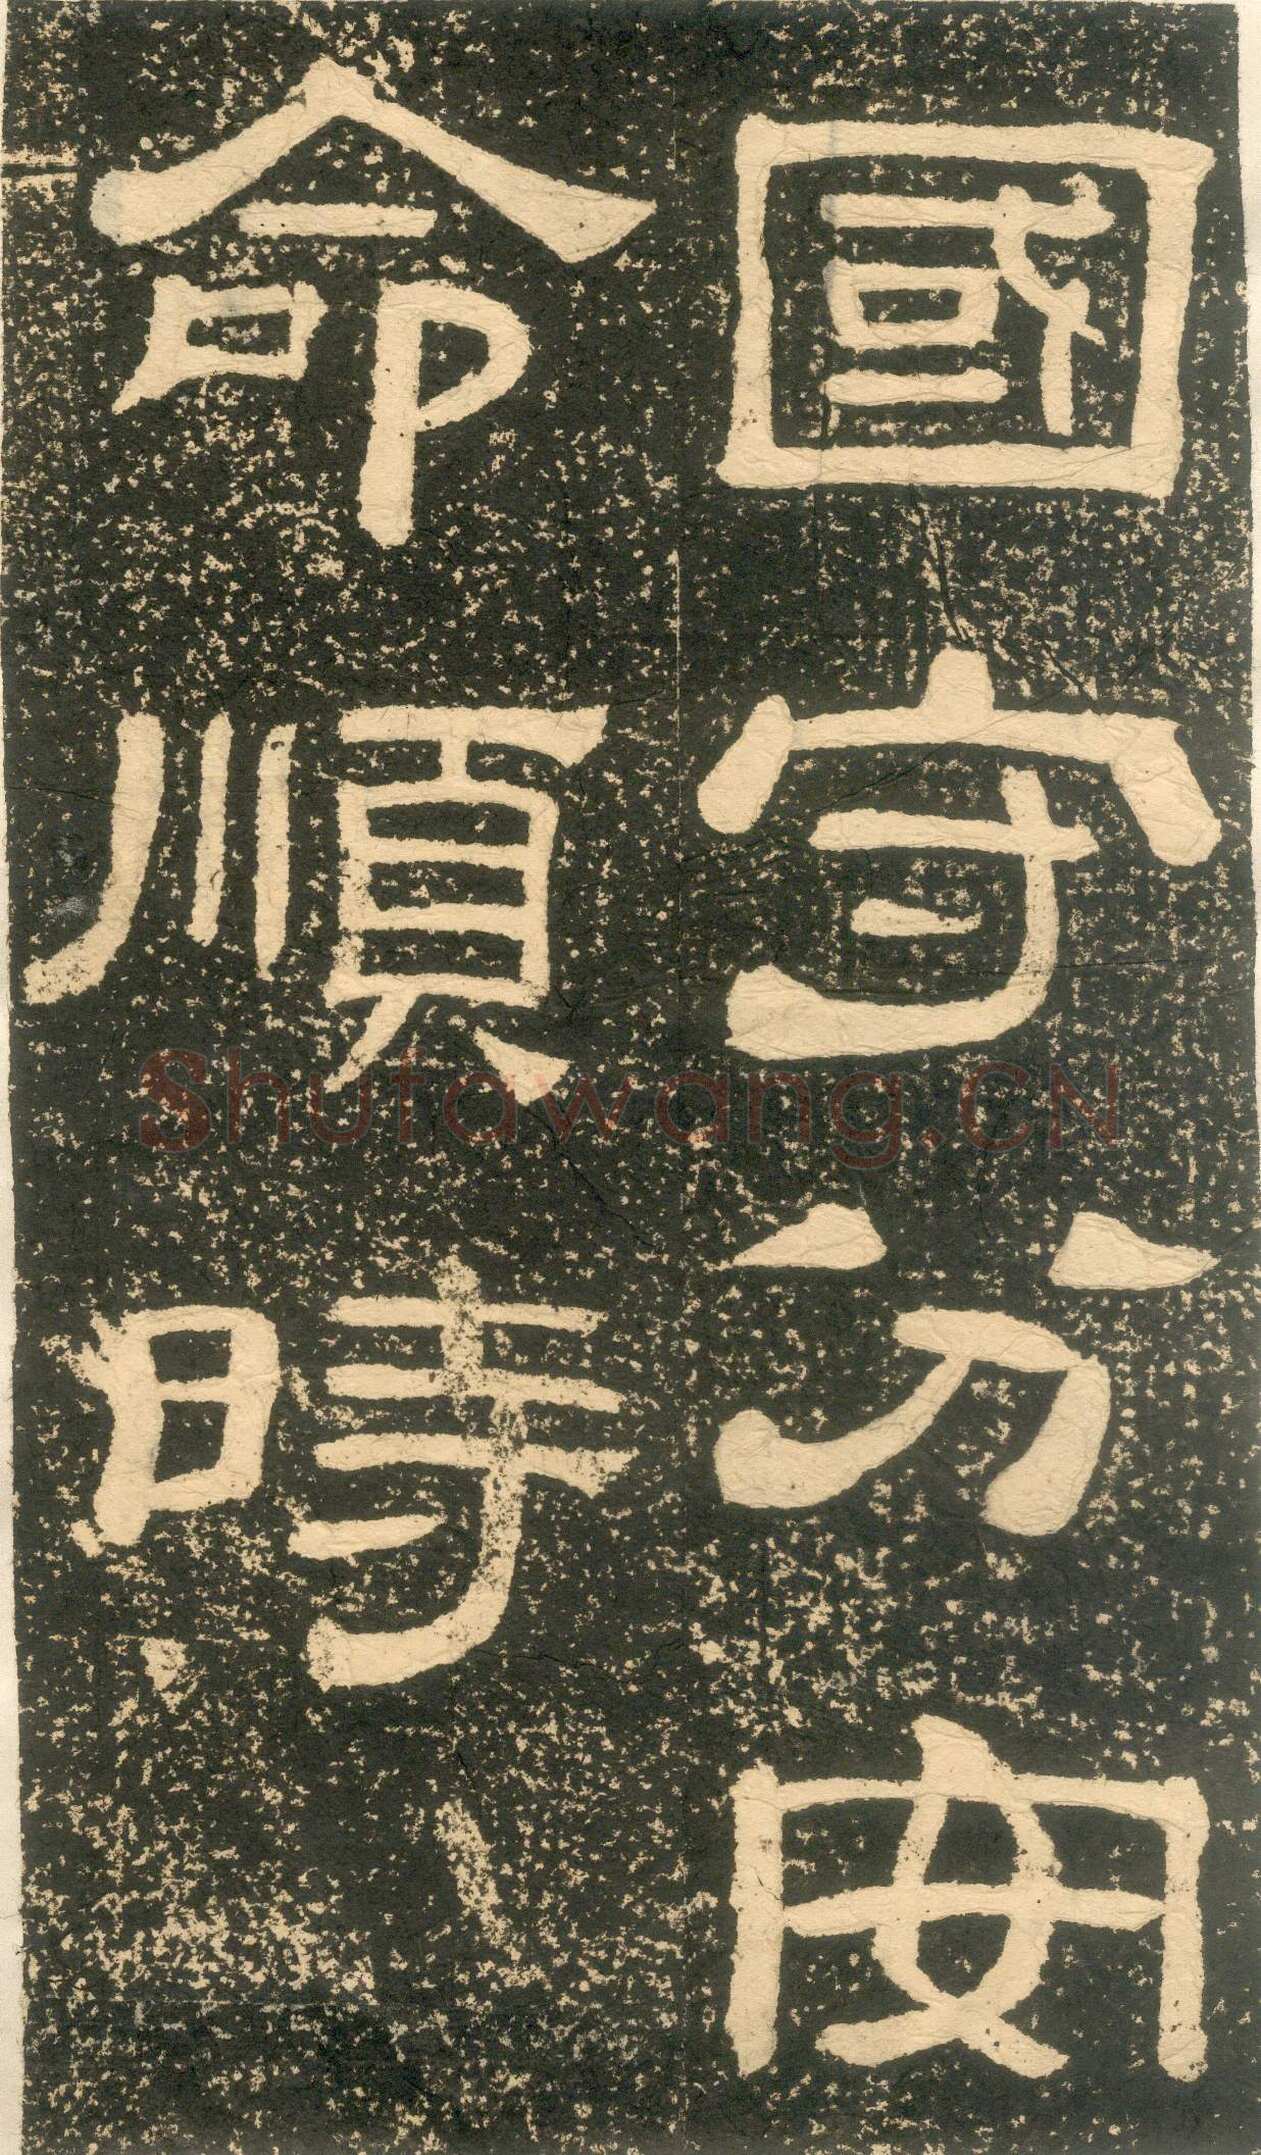 國守分安
命順時
Shufawang.CN